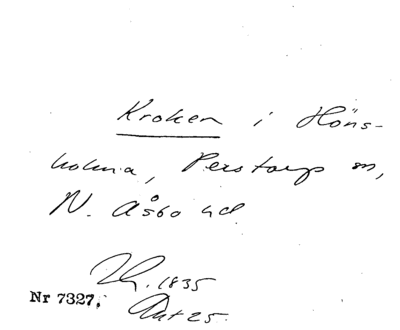 Kroken i Höns-
holma, Perstorp sn,
N. Åsbo hd
Th. 1835
Nr 7327,
Akt 25.